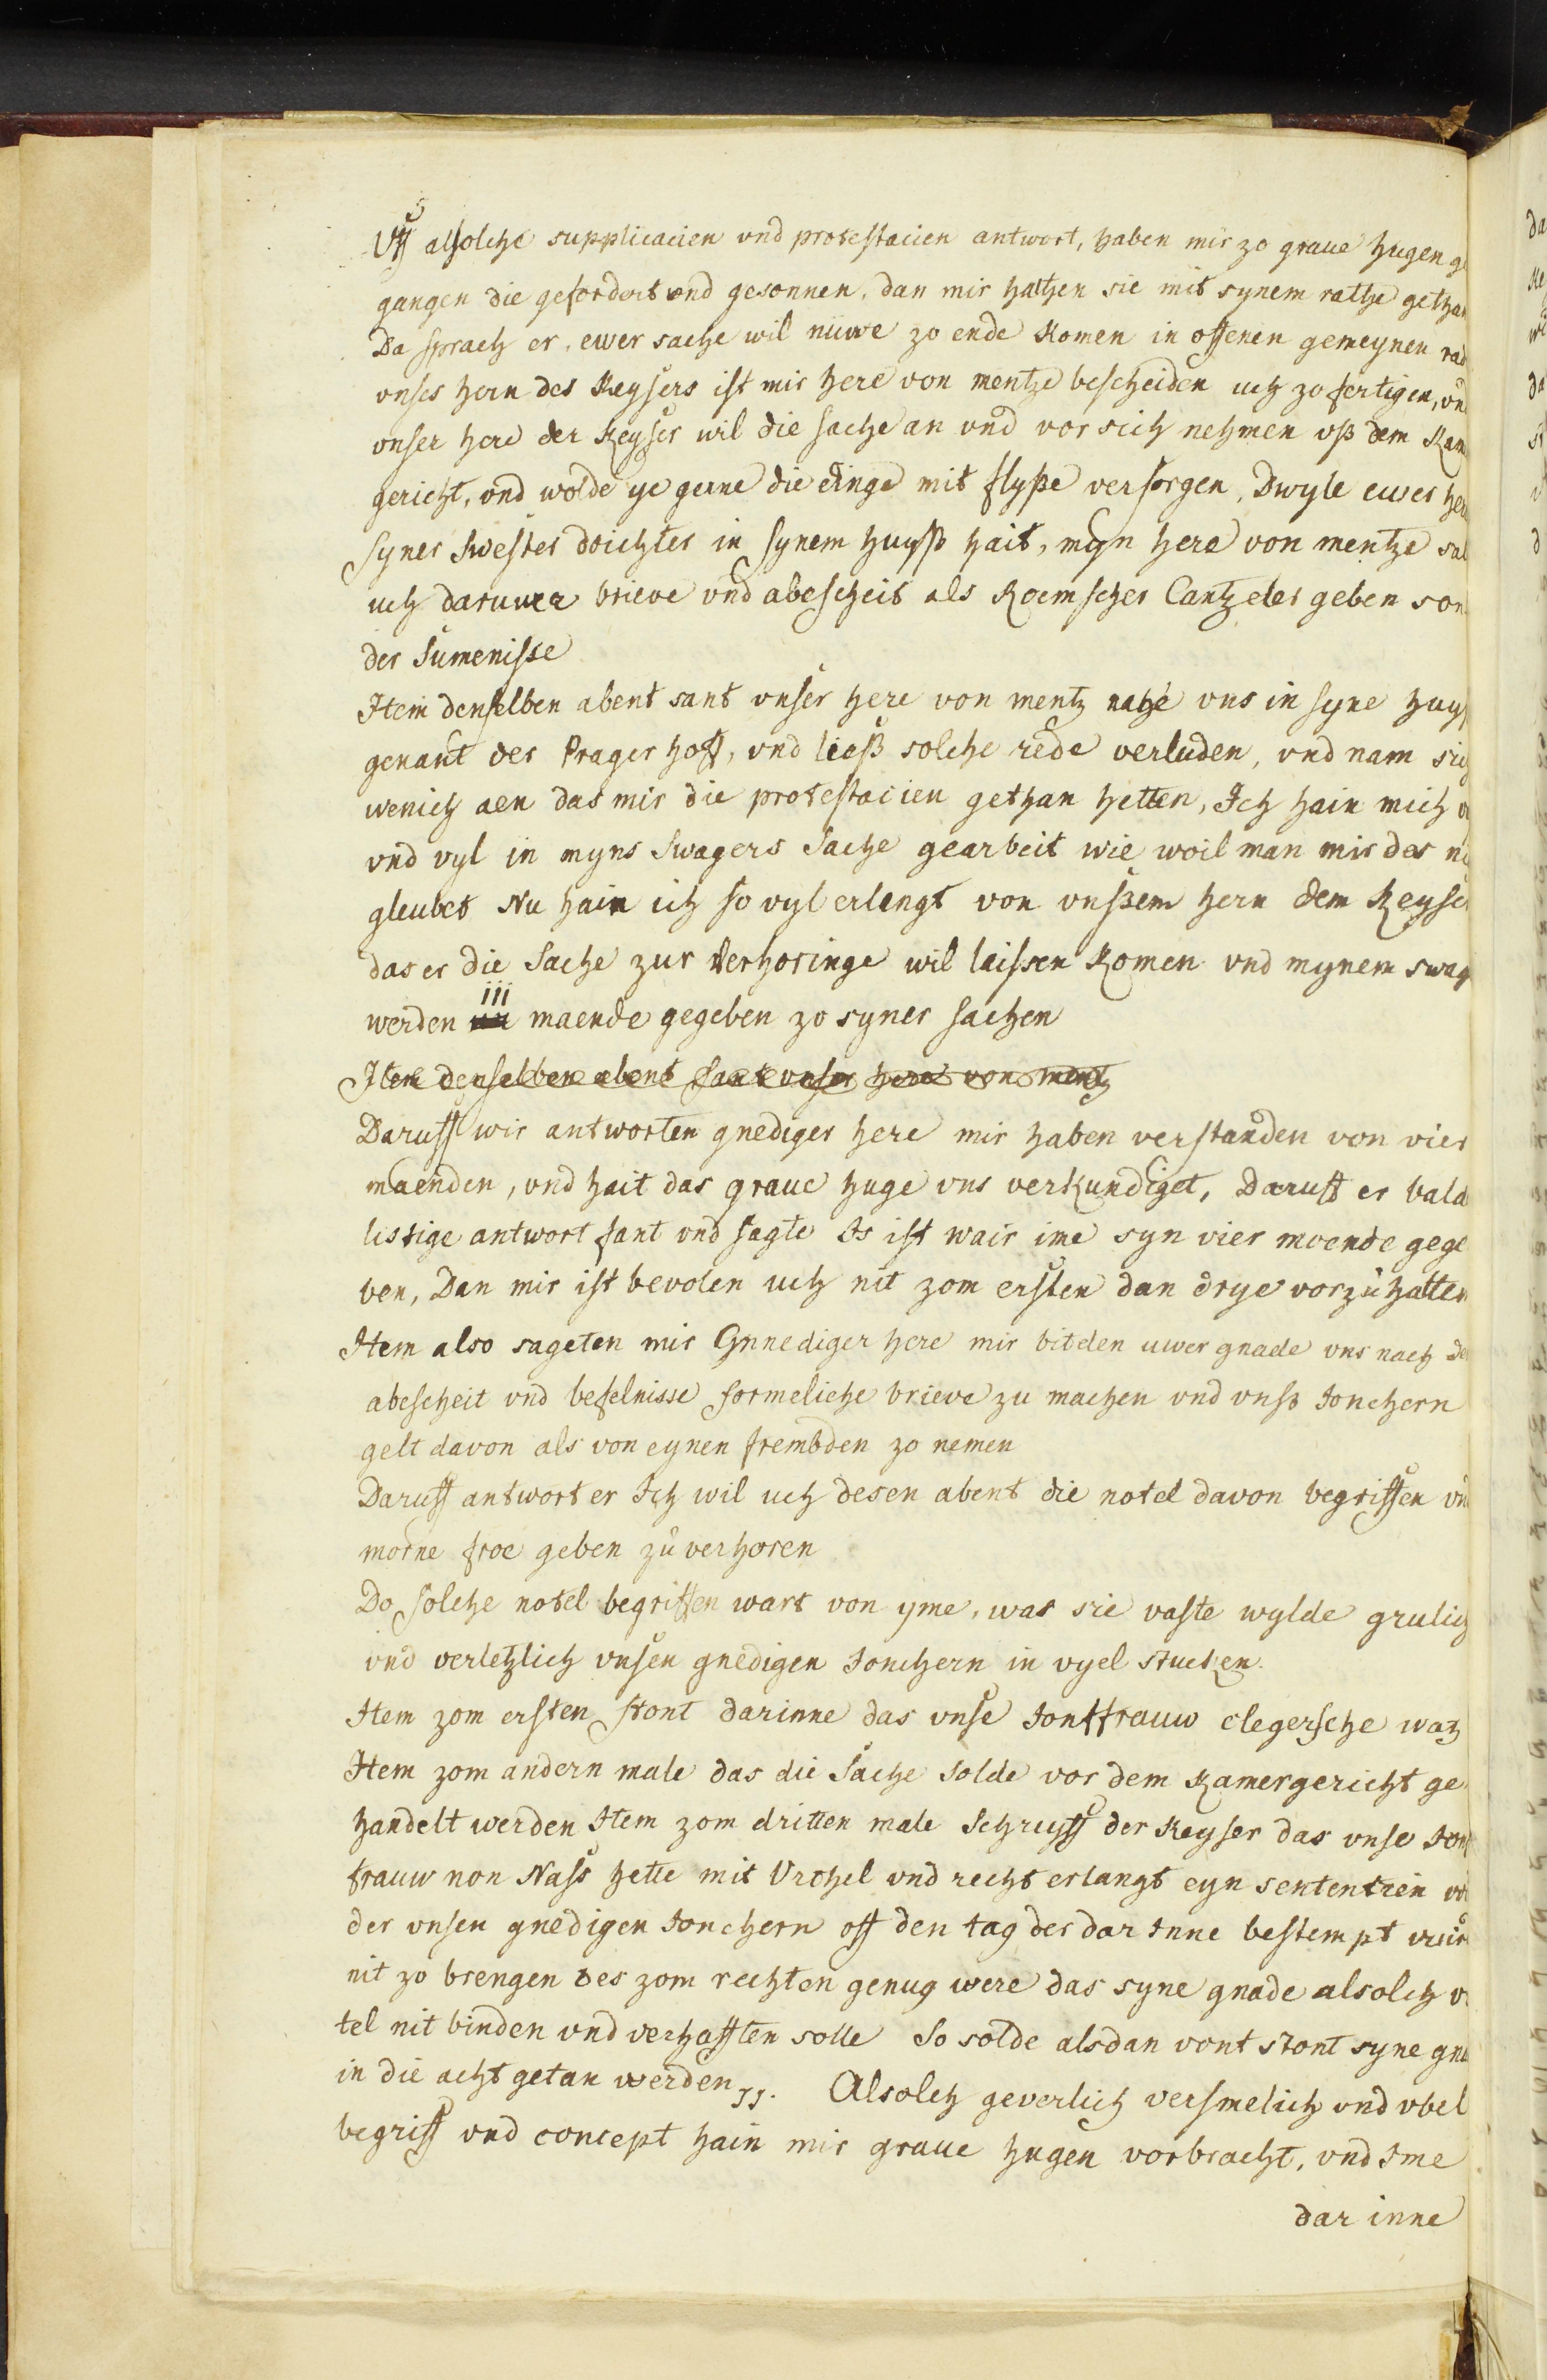 Uff alsolche supplicacien vnd protestacien antwort, haben mir zo graue hugen ge
gangen die gefordert vnd gesonnen, dan mir hathen sie mit synem rathe gethan
Da sprach er, ewer sache wil nüwe zo ende komen in offenen gemeynen rad
vnses hern des Keysers ist mir here von mentze bescheiden uch zo fertigen, vn
vnser here der Keyser wil die sache an vnd vor sich nehmen vß dem Kam
gericht, vnd wolde ye gerne die dinge mit flyße versorgen, Dwyle euer her
syner swester doichter in synem huyß hait, myn here von mentze sal
uch daruwer brieve vnd abescheit als Roemscher Cantzeler geben son
der sumenisse
Item denselben abent sant vnser here von mentz nahe vns in syne huyß
genant der Prager hoff, vnd ließ solche rede verluden, vnd nam sich
wenich aen das mir die protestacien gethan hetten, Ich hain mich
vnd vyl in myns swagers sache gearbeit wie woil man mir des ni
gleubet Nu hain ich so vyl erlengt von vnßem hern dem Keyser
das er die sache zur Verhoringe wil laissen Komen vnd mynem swag
werden iii maende gegeben zo syner sachen
Item denselben abent sant vnser here von mentz
Daruff wir antworten gnediger here mir haben verstanden von vier
maenden, vnd hait das graue huge vns verkundiget, Daruff er bald
listige antwort fant vnd sagte Is ist wair ime syn vier moende gege
ben, Dan mir ist bevolen uch nit zom ersten dan drye vorzuhalten
Item also sageten mir Gnnediger here mir bidden uwer gnade vns nach de
abescheit vnd befelnisse formeliche brieve zu machen vnd vnß Jonchern
gelt davon als von eynen frembden zo nemen
Daruff antwort er Ich wil uch desen abent die notel davon begriffen vn
morne froe geben zu verhoren
Do solche notel begriffen wart von yme, was sie vaste wylde grulich
vnd verletzlich vnsen gnedigen Jonchern in vyel stucken.
Item zom ersten stont darinne das vnse Jonffrauw clegersche wah
Item zom andern male das die sache solde vor dem Kamergericht ge
handelt werden Item zom dritten male Schruyff der Keyser das vnse Jonf
frauw non Nass hette mit Vrthel vnd recht erlangt eyn sententien wi
der vnsen gnedigen Jonchern off den tag der dar Inne bestempt wur
nit zo brengen des zom rechten genug were das syne gnade alsolch v
tel nit binden vnd verhafften solle So solde alsdan vont stont syne gna
in die acht getan werden. Alsolch geverlich versmelich vnd vbel
begriff vnd concept hain mir graue hugen vorbracht, vnd Ime
dar inne